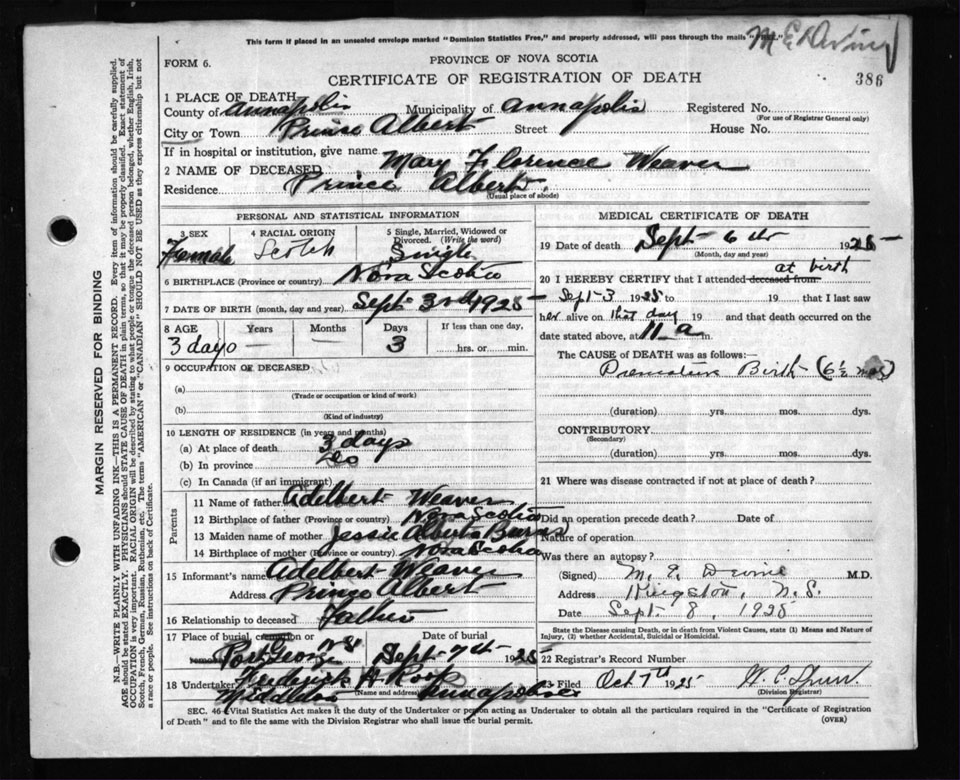 This form if placed in an unsealed envelope marked "Dominion Statistics Free," and properly addressed, will pass through the mails
386
FORM 6.
PROVINCE OF NOVA SCOTIA
CERTIFICATE OF REGISTRATION OF DEATH
1 PLACE OF DEATH
County of Annapolis Municipality of Annapolis Registered No.
(For use of Registrar General only)
City or Town Prince Albert Street House No.
If in hospital or institution, give name
2 NAME OF DECEASED Mary Florence Weaver
Residence Prince Albert.
(Usual place of abode)
PERSONAL AND STATISTICAL INFORMATION
3 SEX
Female
4 RACIAL ORIGIN
Scotch
5 Single, Married, Widowed or
Divorced. (Write the word)
Single
6 BIRTHPLACE (Province or country) Nova Scotia
7 DATE OF BIRTH (month, day and year) Sept 3rd 1925
8 AGE Years Months Days If less than one day,
3 days — — 3 hrs. or min.
9 OCCUPATION OF DECEASED
(a)
(Trade or occupation or kind of work)
(b)
(Kind of industry)
10 LENGTH OF RESIDENCE (in years and months)
(a) At place of death 3 days
(b) In province do
(c) In Canada (if an immigrant)
Parents
11 Name of father Adelbert Weaver
12 Birthplace of father (Province or country) Nova Scotia
13 Maiden name of mother Jessie Alberta
14 Birthplace of mother (Province or country) Nova Scotia
15 Informant's name Adelbert Weaver
Address Prince Albert
16 Relationship to deceased Father
17 Place of burial, cremation or removal Date of burial
Port George N.S. Sept 7th 1925
18 Undertaker Frederick H Roop
(Name and address) Annapolis
MEDICAL CERTIFICATE OF DEATH
19 Date of death Sept 6th 1925
(Month, day and year)
at birth
20 I HEREBY CERTIFY that I attended deceased from
Sept 3 1925 to 19 that I last saw
her alive on that day 19 and that death occurred on the
date stated above, at 11 a m.
The CAUSE OF DEATH was as follows:—
Premature Birth (6½ mos)
(duration) yrs. mos. dys.
CONTRIBUTORY
(Secondary)
(duration) yrs. mos. dys.
21 Where was disease contracted if not at place of death?
Did an operation precede death? Date of
Nature of operation
Was there an autopsy?
(Signed) M.D.
Address Kingston, N.S.
Date Sept 8 1925
State the Disease Causing Death, or in death from Violent Causes, state (1) Means and Nature of
Injury, (2) whether Accidental, Suicidal or Homicidal.
22 Registrar's Record Number
23 Filed Oct 7th 1925
(Division Registrar)
SEC. 46 Vital Statistics Act makes it the duty of the Undertaker or person acting as Undertaker to obtain all the particulars required in the "Certificate of Registration
of Death" and to file the same with the Division Registrar who shall issue the burial permit.
(OVER)
MARGIN RESERVED FOR BINDING
N.B.—WRITE PLAINLY WITH UNFADING INK—THIS IS A PERMANENT RECORD. Every item of information should be carefully supplied.
AGE should be stated EXACTLY. PHYSICIANS should STATE CAUSE OF DEATH in plain terms, so that it may be properly classified. Exact statement of
OCCUPATION is very important. RACIAL ORIGIN will be described by stating to what people or tongue the deceased person belonged, whether English, Irish,
Scotch, French, German, Russian, Ruthenian, etc. The terms "AMERICAN" or "CANADIAN" SHOULD NOT BE USED as they express citizenship but not
a race or people. See instructions on back of Certificate.